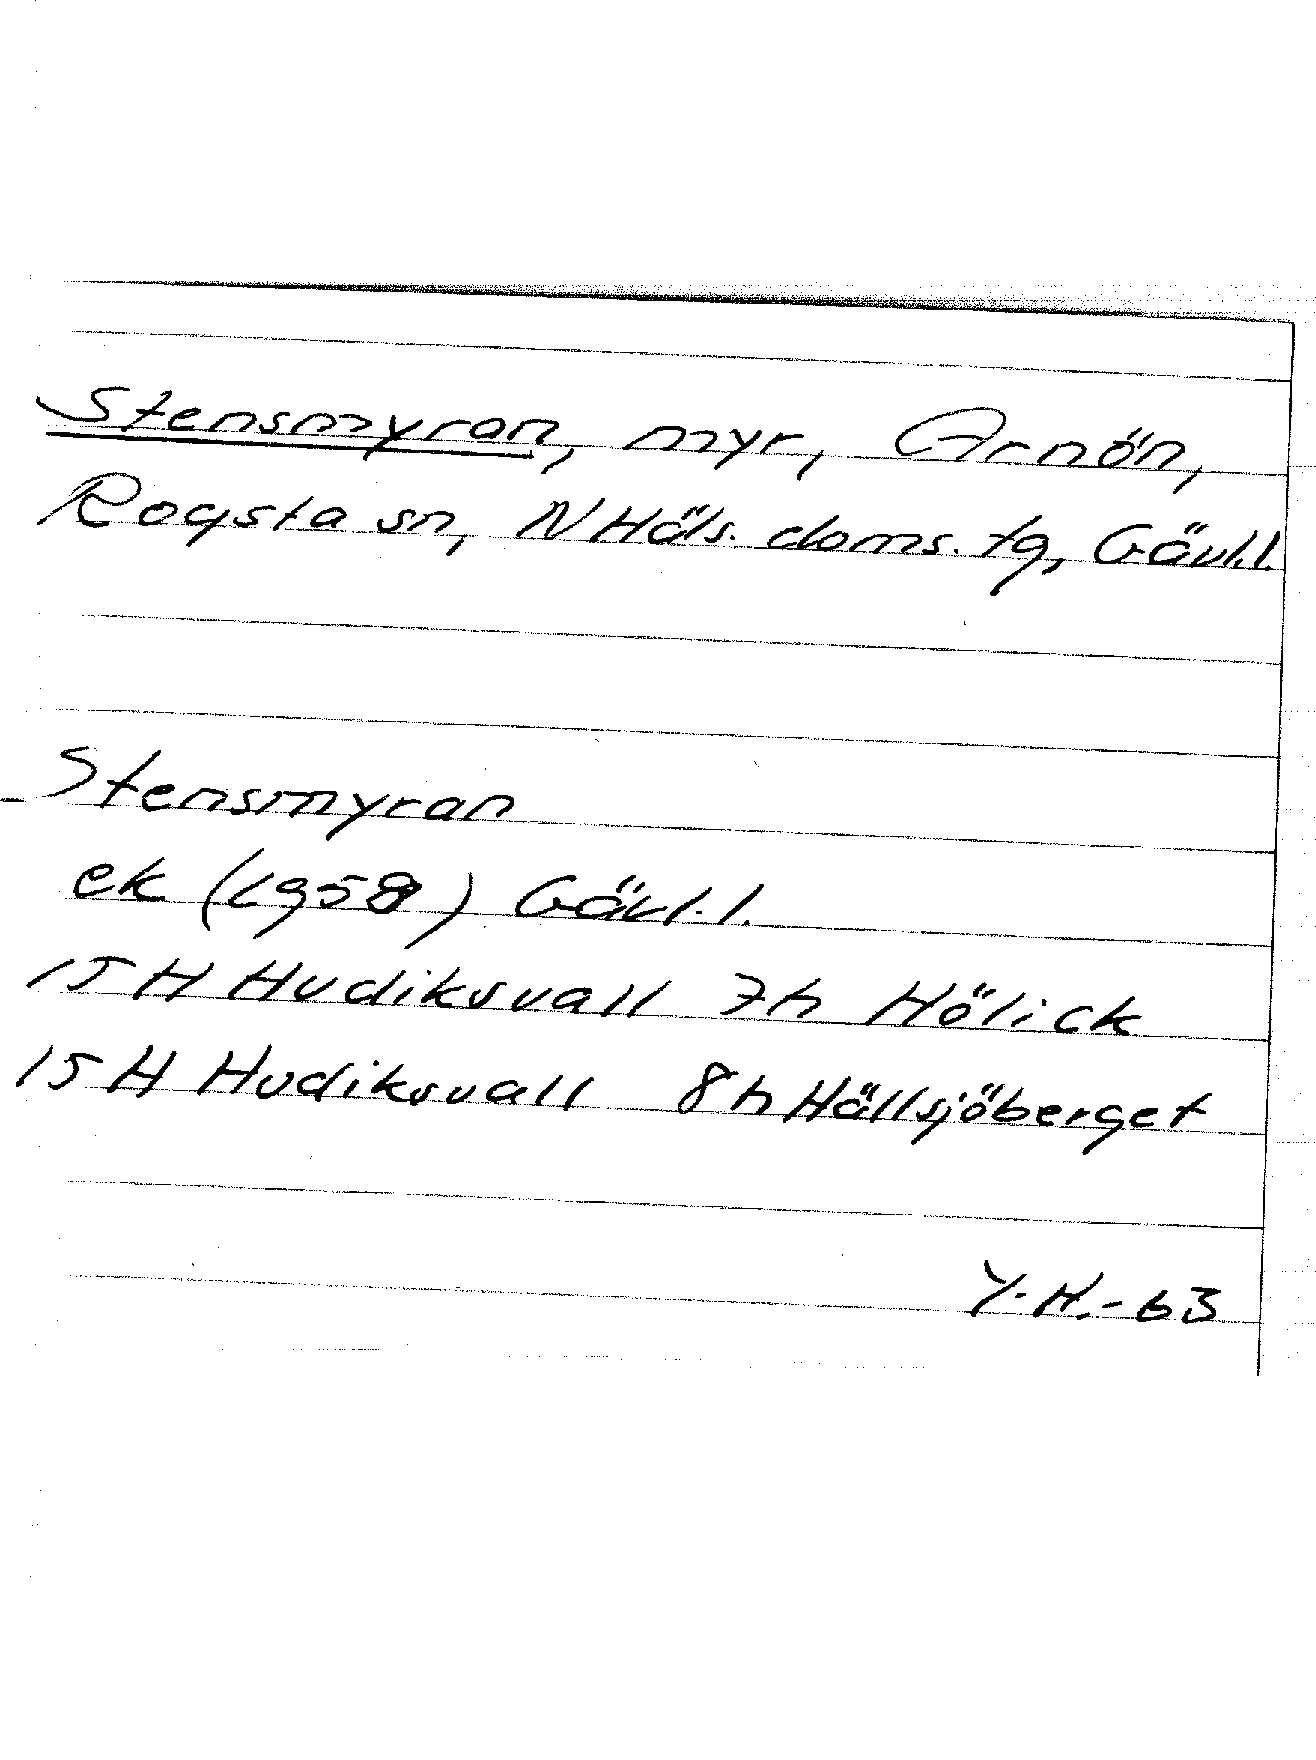 Stensmyran, myr, Arnön,
Rogsta sn, N Häls. doms. tg, Gävl.l.
Stensmyran
ek (1958) Gävl.l.
15 H Hudiksvall 7h Hölick
15 H Hudiksvall 8h Hällsjöberget
Y.H.-63